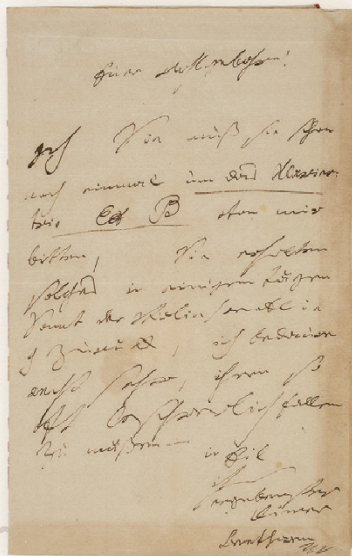 Euer
Ich Sie muß sie schon
noch einmal um das Klavier
trio Es B von mir
bitten, Sie erhalten
solches in einigen Tägen
Samt der Violin Sonate
zurück, ich bedaure
recht sehr, ihnen so
oft beschwerlich fallen
zu müßen — in Eil
ihr
ergebenster
Diener
Beethoven